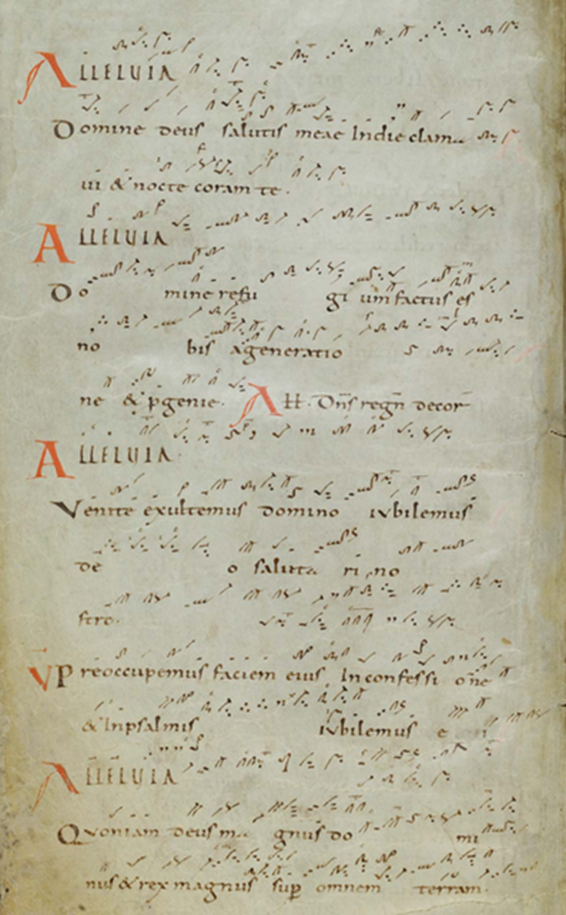 ALLELUIA
Domine deus salutis meae Indie clama
ui & nocte coram te.
ALLELUIA
Do mine refu gi um factus es
no bis ageneratio
ne & pgenie. All. Dns regn decor
ALLELUIA
Venite exultemus domino iubilemus
de o salutari no
stro.
V Preoccupemus faciem eius Inconfessi one
& Inpsalmis iubilemus e i
ALLELUIA
Quoniam deus ma gnus do mi
nus & rex magnus sup omnem terram.